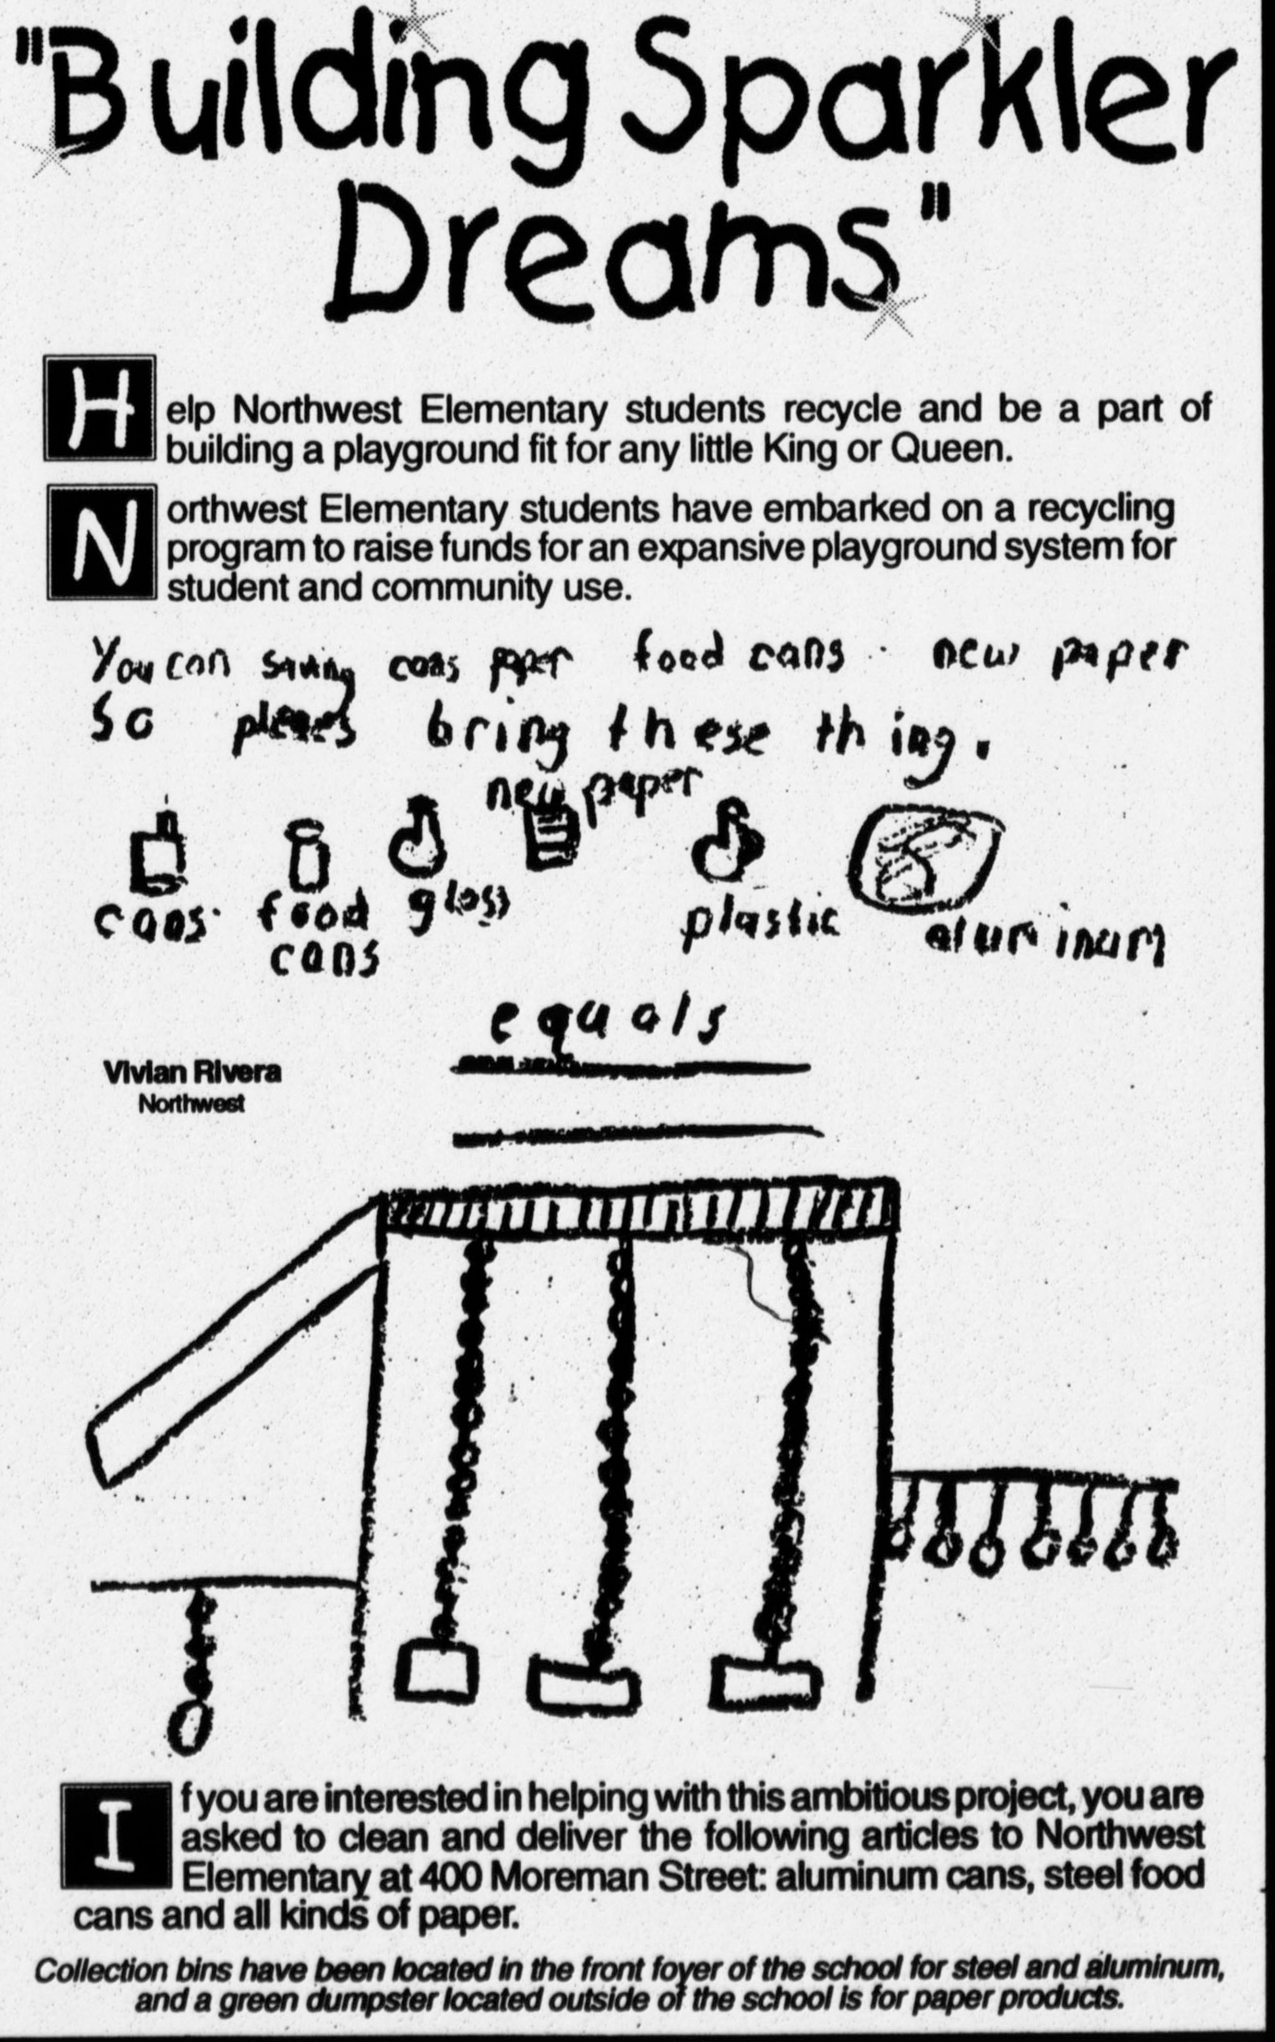 "Building Sparkler
Dreams"
Help Northwest Elementary students recycle and be a part of
building a playground fit for any little King or Queen.
Northwest Elementary students have embarked on a recycling
program to raise funds for an expansive playground system for
student and community use.
You can saving cans paper food cans. new paper
So pleaes bring these thing.
new paper
cans. food glass plastic aluminum
cans
equals
Vivian Rivera
Northwest
If you are interested in helping with this ambitious project, you are
asked to clean and deliver the following articles to Northwest
Elementary at 400 Moreman Street: aluminum cans, steel food
cans and all kinds of paper.
Collection bins have been located in the front foyer of the school for steel and aluminum,
and a green dumpster located outside of the school is for paper products.